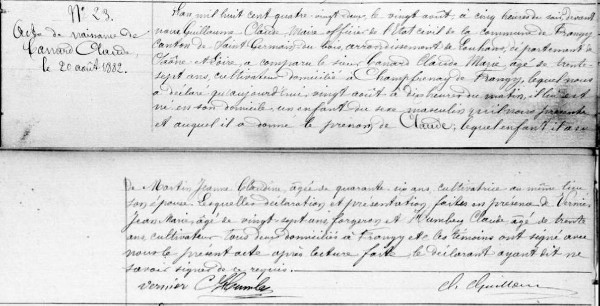 N° 23.
Acte de naissance de
Canard Claude,
le 20 août 1882.
L'an mil huit cent quatre vingt deux, le vingt août, à cinq heures du soir devant
nous Guillemin Claude Marie officier de l'état civil de la commune de Frangy
canton de Saint Germain du bois, arrondissement de Louhans, département de
Saône et Loire, a comparu le sieur Canard Claude Marie, âgé de trente
sept ans, cultivateur domicilié à de Frangy, lequel nous
a déclaré qu'aujourd'hui, vingt août à dix heures du matin, il lui est
né en son domicile, un enfant du sexe masculin qu'il nous présente
et auquel il a donné le prénom de Claude, lequel enfant il a eu
de Martin Jeanne Claudine, âgée de quarante six ans, cultivatrice au même lieu
son épouse. Lesquelles déclaration et présentation faites en présence de Vernier
Jean Marie, âgé de vingt-sept ans forgeron et Humbey Claude âgé de trente
ans cultivateur tous deux domiciliés à Frangy et les témoins ont signé avec
nous le présent acte après lecture faite le déclarant ayant dit ne
savoir signer de ce requis.
Vernier C Humbey Guillemin